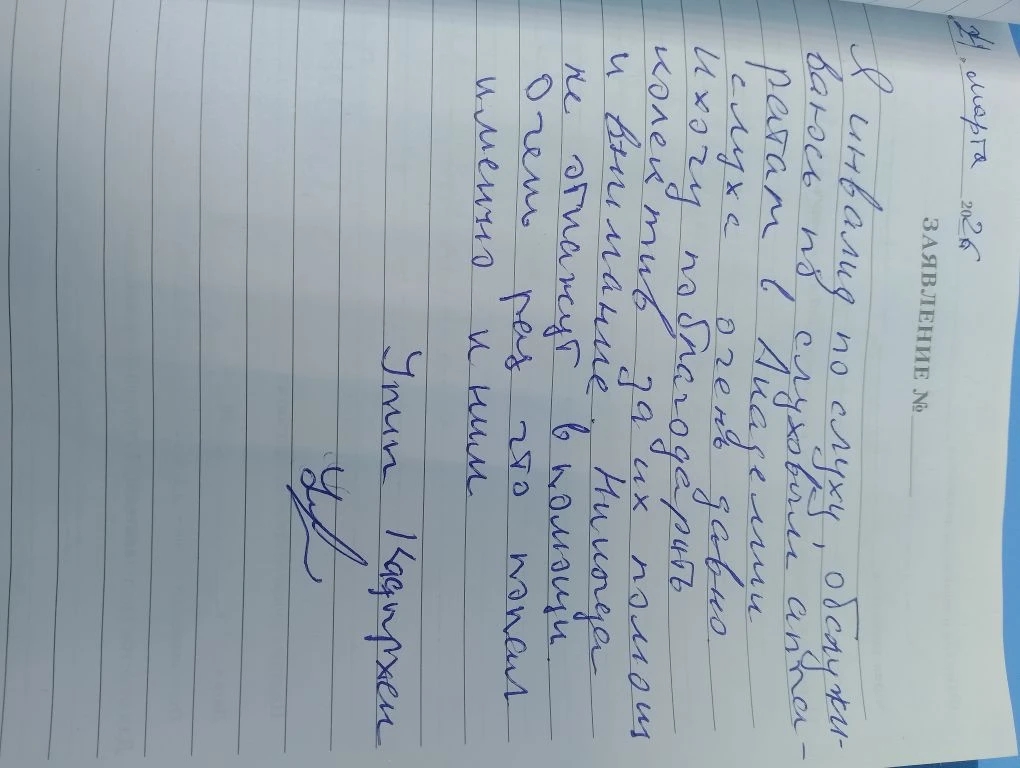 21. марта 2026
ЗАЯВЛЕНИЕ №
Я инвалид по слуху, обслужи-
ваюсь по слуховым аппа-
ратам в Академии
слуха очень давно
И хочу поблагодарить
колектив за их помощ
и внимание. Никогда
не откажут в помощи.
Очень рад что попал
именно к ним
Утип